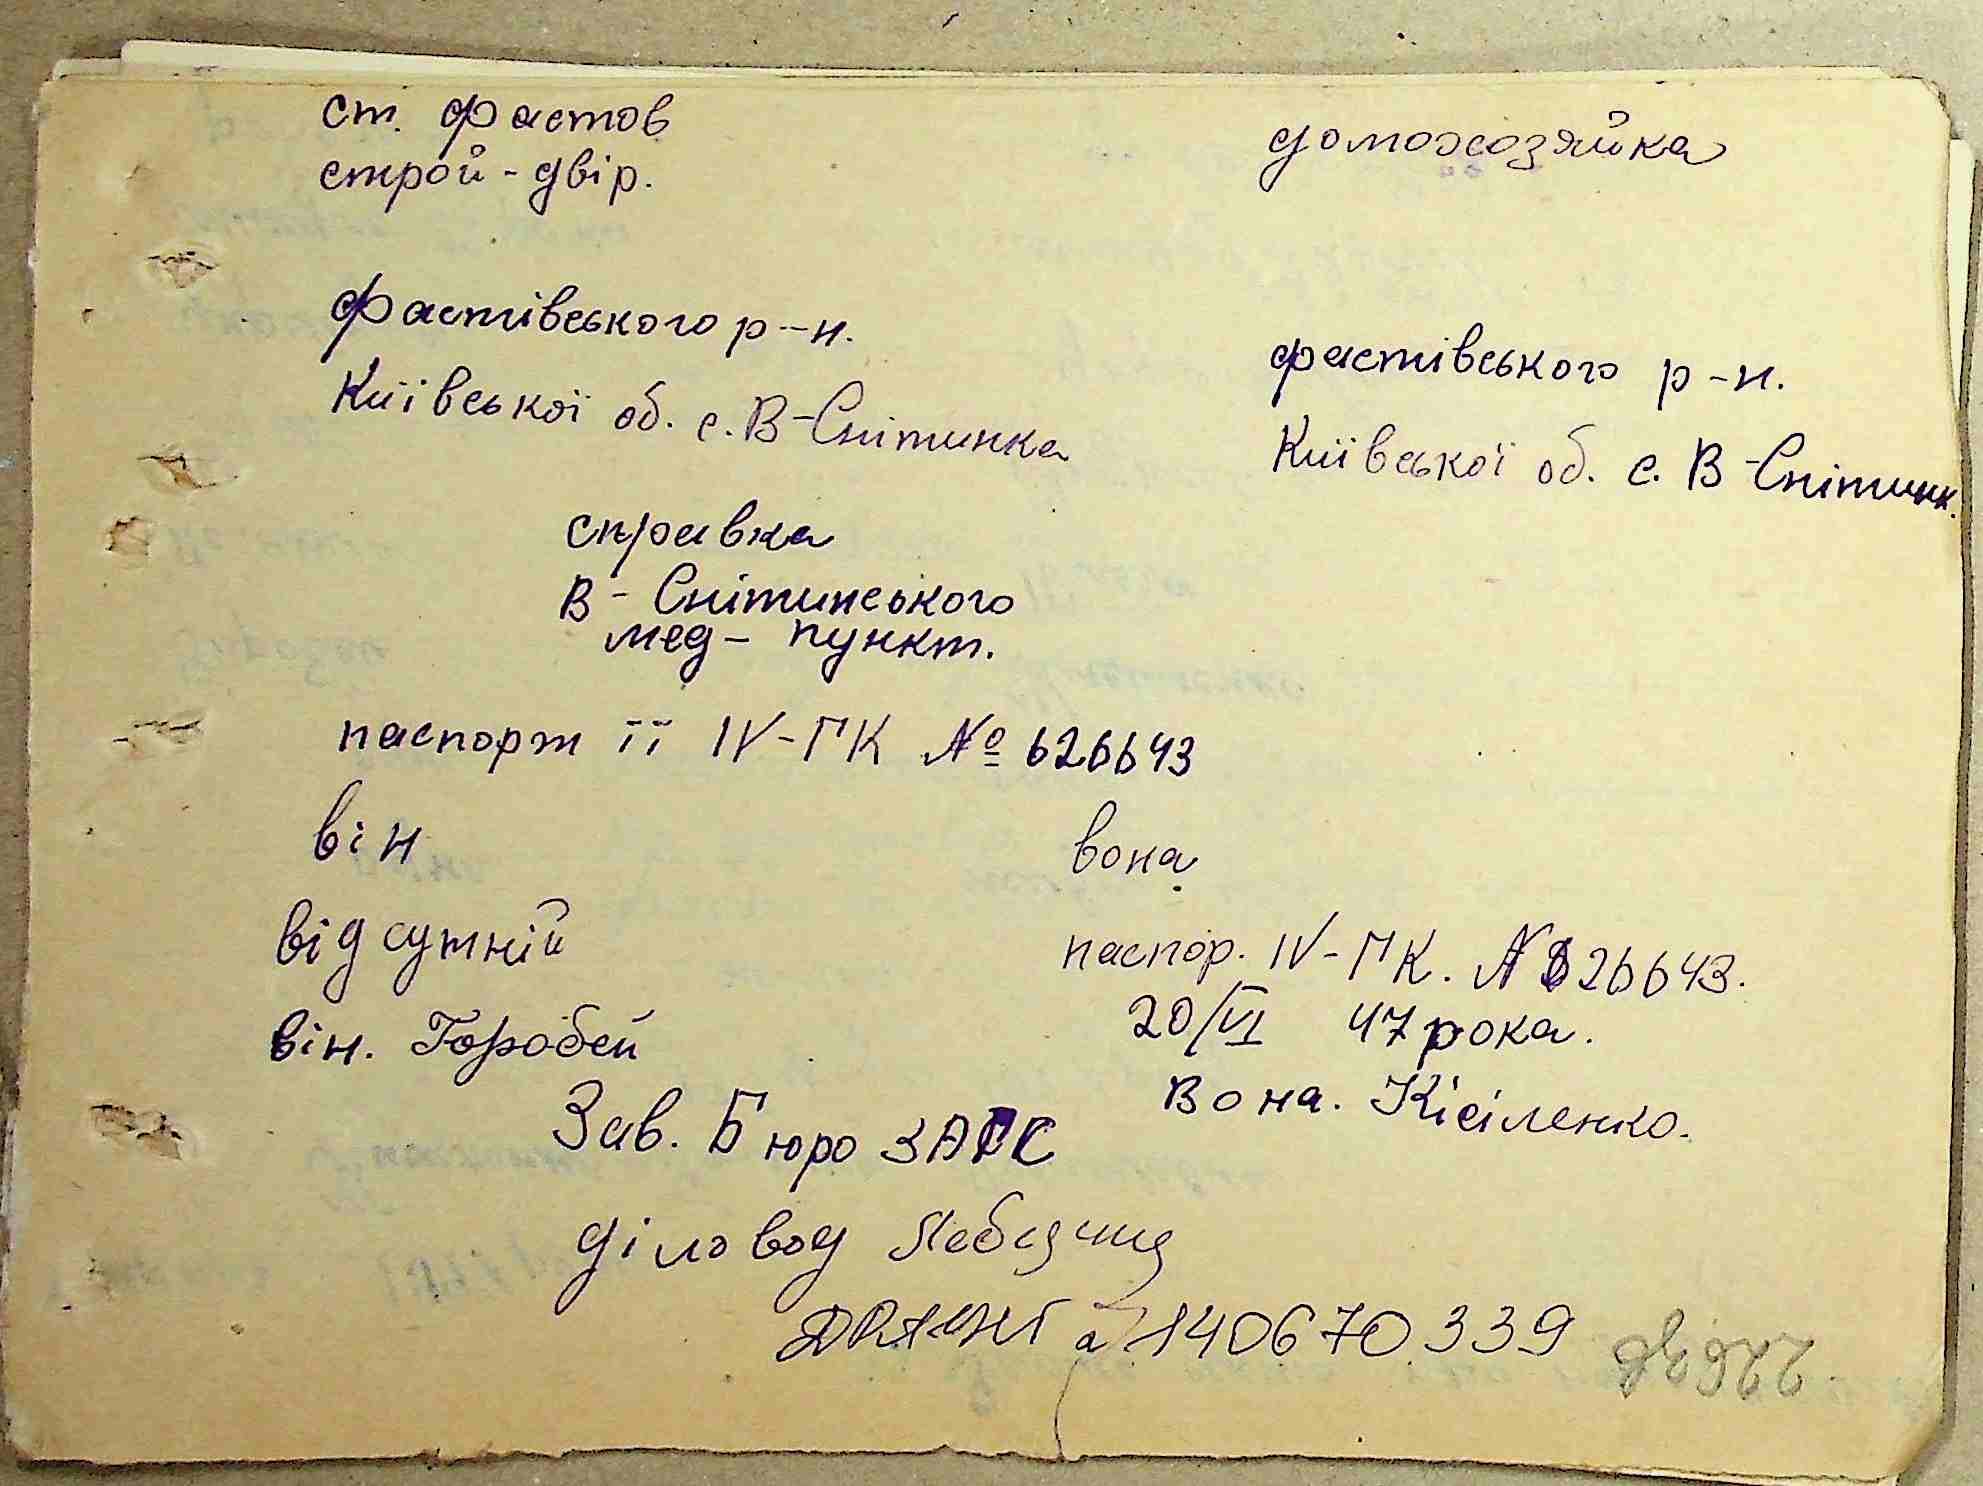 ст. Фастов
строй-двір.
домохозяйка
Фастівського р-н.
Київської об. с. В-Снітинка
фастівського р-н.
Київської об. с. В-Снітинк.
справка
В-Снітинського
мед-пункт.
паспорт її IV-ГК № 626643
він
вона
відсутній
паспор. IV-ГК. № 626643.
20/VI 47 рока.
він. Горобей
Вона. Кісіленко.
Зав. Бюро ЗАГС
діловод
140670339